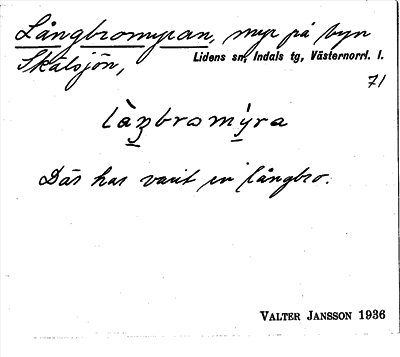 Långbromyran, myr på byn
Skälsjön, Lidens sn, Indals tg, Västernorrl. l.
71
làŋbromýra
Där har varit en långbro.
VALTER JANSSON 1936